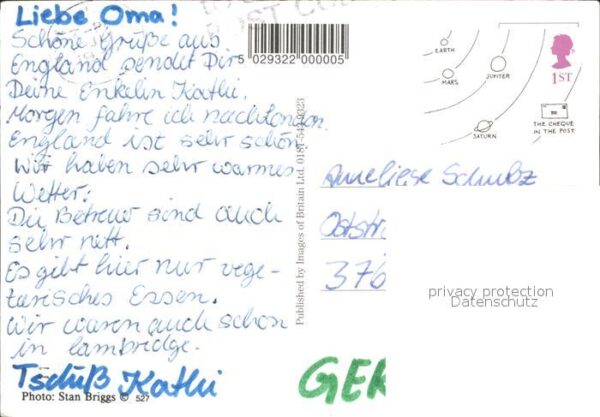 Liebe Oma!
Schöne Grüße aus
England sendet Dir
Deine Enkelin Kathi.
Morgen fahre ich nach London.
England ist sehr schön.
Wir haben sehr warmes
Wetter.
Die Betreuer sind auch
sehr nett.
Es gibt hier nur vege-
tarisches Essen.
Wir waren auch schon
in Cambridge.
Tschüß Kathi
Photo: Stan Briggs © 527
POST
5 029322 000005
Published by Images of Britain Ltd.
EARTH
MARS
JUPITER
SATURN
1ST
THE CHEQUE
IN THE POST
Anneliese Schulz
Oststr
376
privacy protection
Datenschutz
GER